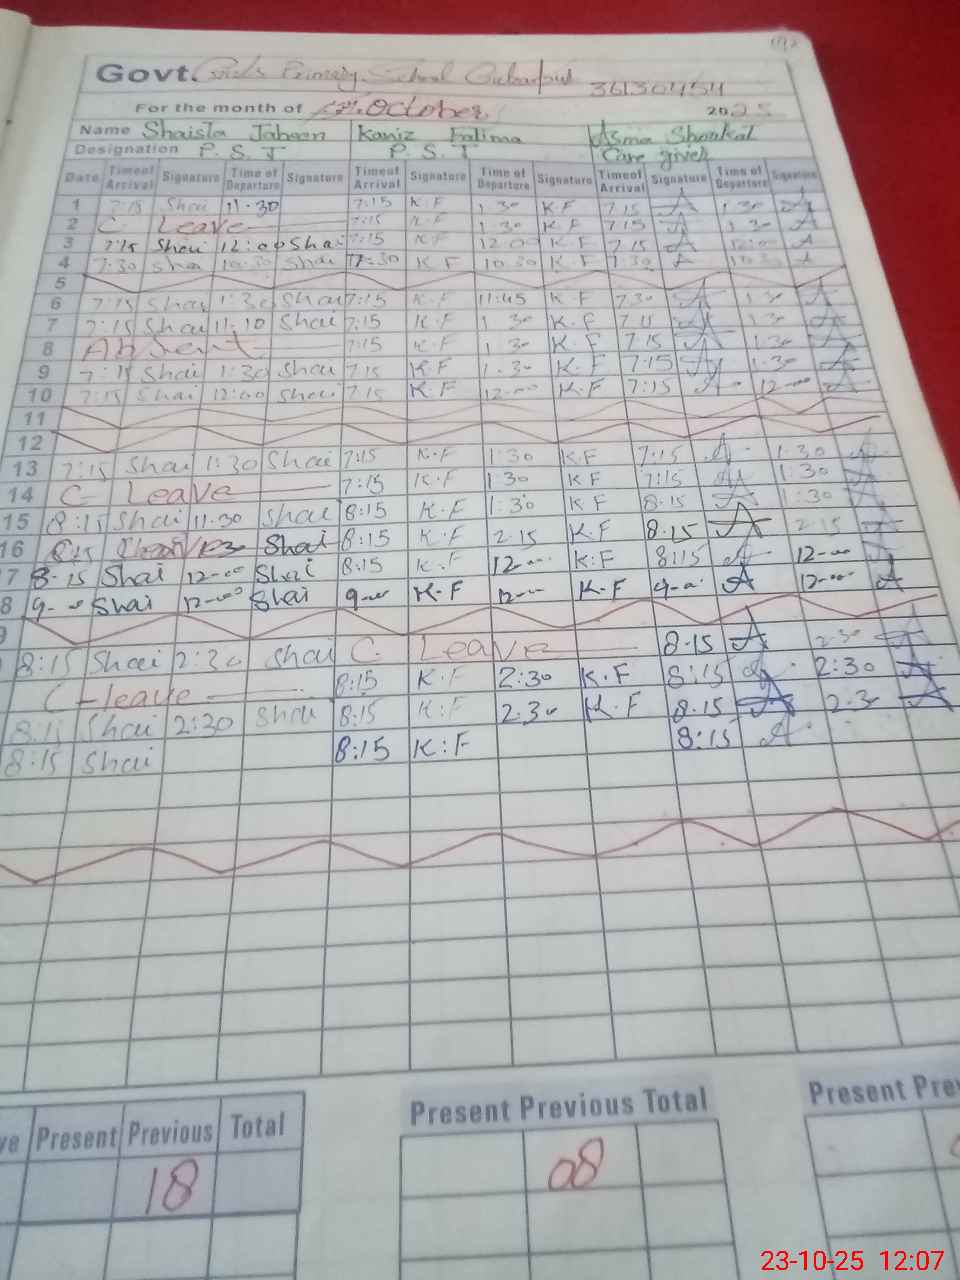 Govt. Girls Primary School 36130454
For the month of October 2025
Name Shaista Jabeen Kaniz Fatima Asma Shoukat
Designation P.S.T P.S.T Care giver
Date Time of Arrival Signature Time of Departure Signature Time of Arrival Signature Time of Departure Signature Time of Arrival Signature Time of Departure Signature
1 7:15 Shai 11.30 7:15 K.F 1.30 K.F 7.15 A 1.30 A
2 C Leave 7:15 K.F 1.30 K.F 7.15 A 1.30 A
3 7:15 Shai 12:00 Shai 7:15 K.F 12.00 K.F 7.15 A 12:00 A
4 7:30 Shai 10:30 Shai 7:30 K.F 10.30 K.F 7.30 A 10.30 A
5
6 7:15 Shai 1:30 Shai 7:15 K.F 11:45 K.F 7.30 A 1.30 A
7 7:15 Shai 11:10 Shai 7:15 K.F 1.30 K.F 7.15 A 1.30 A
8 Absent 7:15 K.F 1.30 K.F 7.15 A 1.30 A
9 7:15 Shai 1:30 Shai 7:15 K.F 1.30 K.F 7:15 A 1.30 A
10 7:15 Shai 12:00 Shai 7:15 K.F 12-00 K.F 7:15 A 12-00 A
11
12
13 7:15 Shai 1:30 Shai 7:15 K.F 1:30 K.F 7:15 A 1:30 A
14 C- Leave 7:15 K.F 1:30 K F 7:15 A 1:30 A
15 8:15 Shai 11.30 Shai 8:15 K.F 1:30 K F 8.15 A 1:30 A
16 8:15 Shai 8:15 K.F 2.15 K.F 8.15 A 2.15 A
7 8-15 Shai 12-00 Shai 8:15 K.F 12-00 K:F 8:15 A 12-00 A
8 9-00 Shai 12-00 Shai 9-00 K.F 12-00 K.F 9-00 A 12-00 A
9
8:15 Shai 2:30 Shai C Leave 8.15 A 2:30 A
C-leave 8:15 K.F 2:30 K.F 8:15 A 2:30 A
8:15 Shai 2:30 Shai 8:15 K:F 2.30 K.F 8.15 A 2.30 A
8:15 Shai 8:15 K:F 8:15 A
ve Present Previous Total Present Previous Total Present Pre
18 08
23-10-25 12:07